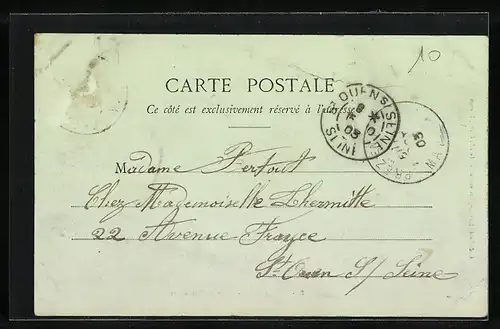 10
CARTE POSTALE
Ce côté est exclusivement réservé à l'adresse
Madame Pertout
Chez Mademoiselle Lhermitte
22 Avenue France
St Ouen S/ Seine
ST OUEN S/ SEINE
03
03